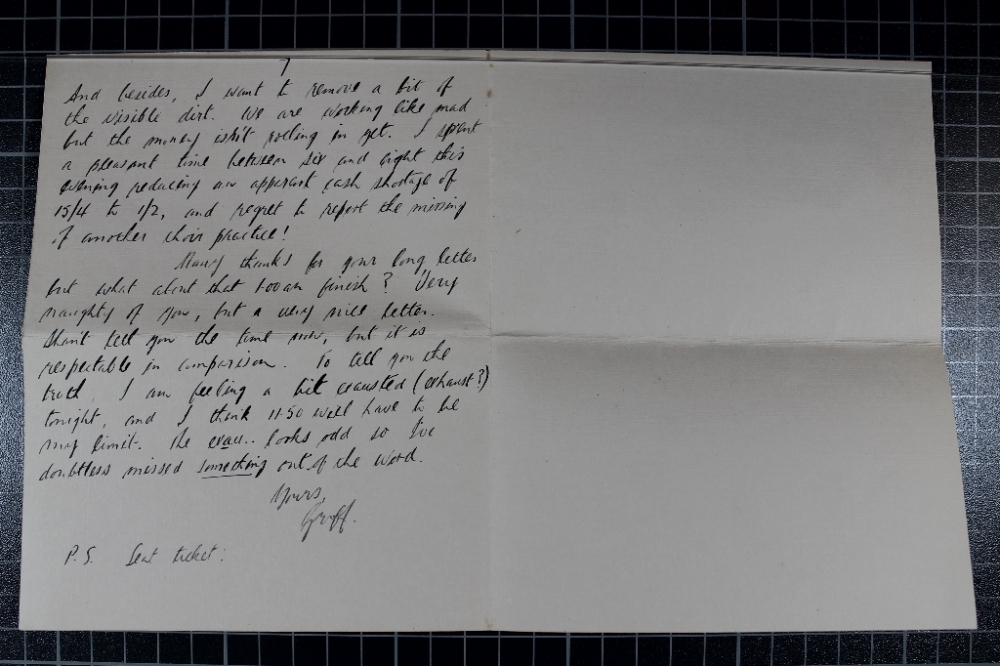 7
And besides, I want to remove a bit of
the visible dirt. We are working like mad
but the money isn't rolling in yet. I spent
a pleasant time between six and eight this
evening reducing an apparent cash shortage of
15/4 to 1/2, and regret to report the missing
of another choir practice!
Many thanks for your long letter
but what about that 1.00 am finish? Very
naughty of you, but a very nice letter.
Shan't tell you the time now, but it is
respectable in comparison. To tell you the
truth, I am feeling a bit exausted (exhaust?)
tonight, and I think 11.50 will have to be
my limit. The exau.. looks odd so I've
doubtless missed something out of the word.
Yours,
P.S. Seat ticket: